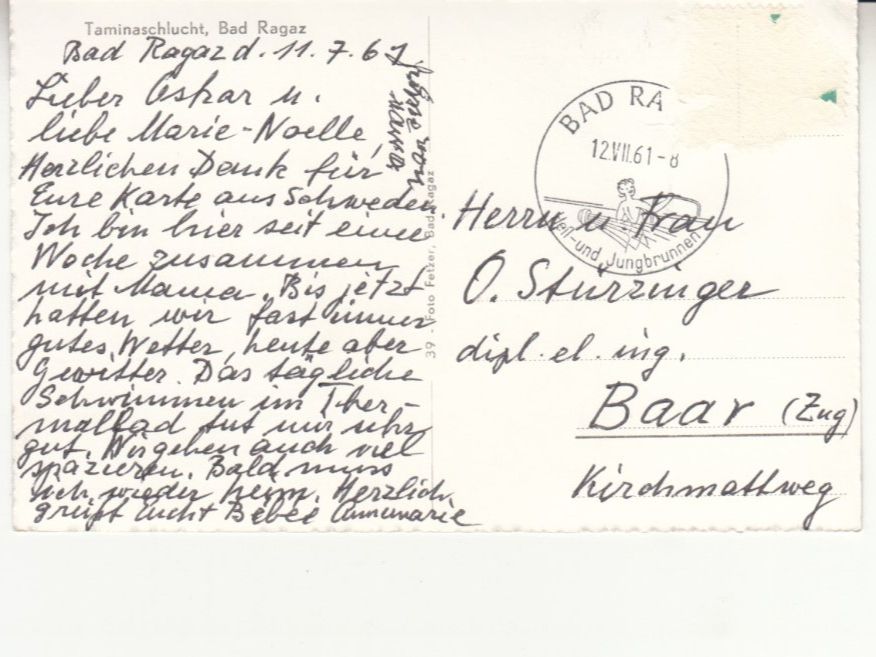 Taminaschlucht, Bad Ragaz
Bad Ragaz d. 11.7.61
Lieber Oskar u.
liebe Marie-Noelle,
Herzlichen Dank für
Eure Karte aus Schweden.
Ich bin hier seit einer
Woche zusammen
mit Mama. Bis jetzt
hatten wir fast immer
gutes Wetter, heute aber
Gewitter. Das tägliche
Schwimmen im Ther-
malbad tut mir sehr
gut. Wir gehen auch viel
spazieren. Bald muss
ich wieder heim. Herzlich
grüsst Euch Bebee Annmarie
Grüsse von
Mama
39 - Foto Fetzer, Bad Ragaz
BAD RA
12.VII.61-8
Heil-und Jungbrunnen
Herrn u. Frau
O. Stürzinger
dipl. el. ing.
Baar (Zug)
Kirchmattweg